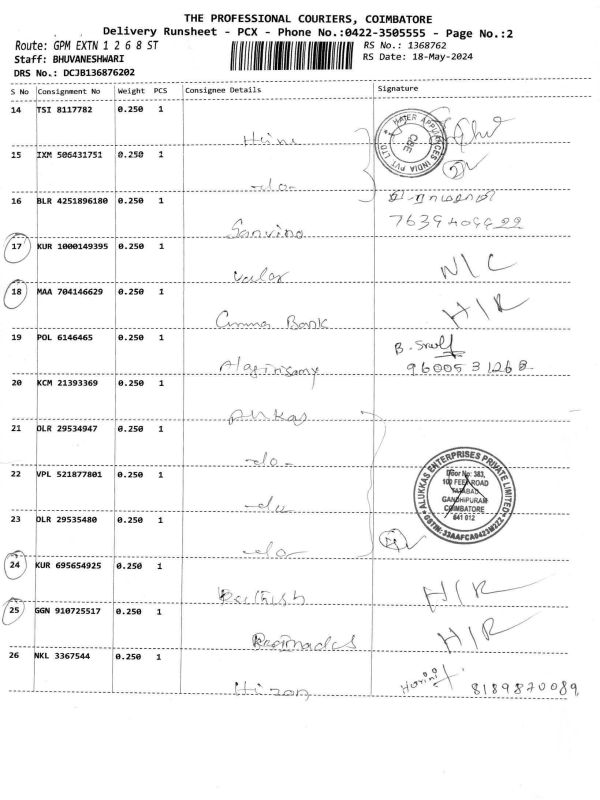 THE PROFESSIONAL COURIERS, COIMBATORE
Delivery Runsheet - PCX - Phone No.:0422-3505555 - Page No.:2
Route: GPM EXTN 1 2 6 8 ST
RS No.: 1368762
Staff: BHUVANESHWARI
RS Date: 18-May-2024
DRS No.: DCJB136876202
S No Consignment No Weight PCS Consignee Details Signature
14 TSI 8117782 0.250 1
HAIER APPLIANCES INDIA PVT LTD. CBE
15 IXM 506431751 0.250 1
-do-
16 BLR 4251896180 0.250 1
7639409922
Sanvino
17 KUR 1000149395 0.250 1 N/C
Valar
18 MAA 704146629 0.250 1 H/R
Bank
19 POL 6146465 0.250 1 B.
9600531268
Alagirisamy
20 KCM 21393369 0.250 1
21 DLR 29534947 0.250 1
-do-
22 VPL 521877801 0.250 1
-do-
ALUKKAS ENTERPRISES PRIVATE LIMITED
Door No: 383,
100 FEET ROAD
TATABAD
GANDHIPURAM
COIMBATORE
641 012
23 DLR 29535480 0.250 1
-do-
24 KUR 695654925 0.250 1 H/R
25 GGN 910725517 0.250 1 H/R
26 NKL 3367544 0.250 1 Harini 8189870089